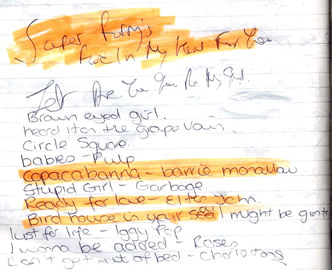 Super Furry's
Fire In My Heart For You
Let Me
Brown eyed girl.
heard it on the grape vain.
Circle Square
babies - Pulp
copacabanna - barrie monallow
Stupid Girl - Garbage
Ready for love - Elten John
Bird house in your soul I might be
lust for life - Iggy Pop
I wanna be adored - Roses
Can't get out of bed - Charlotans